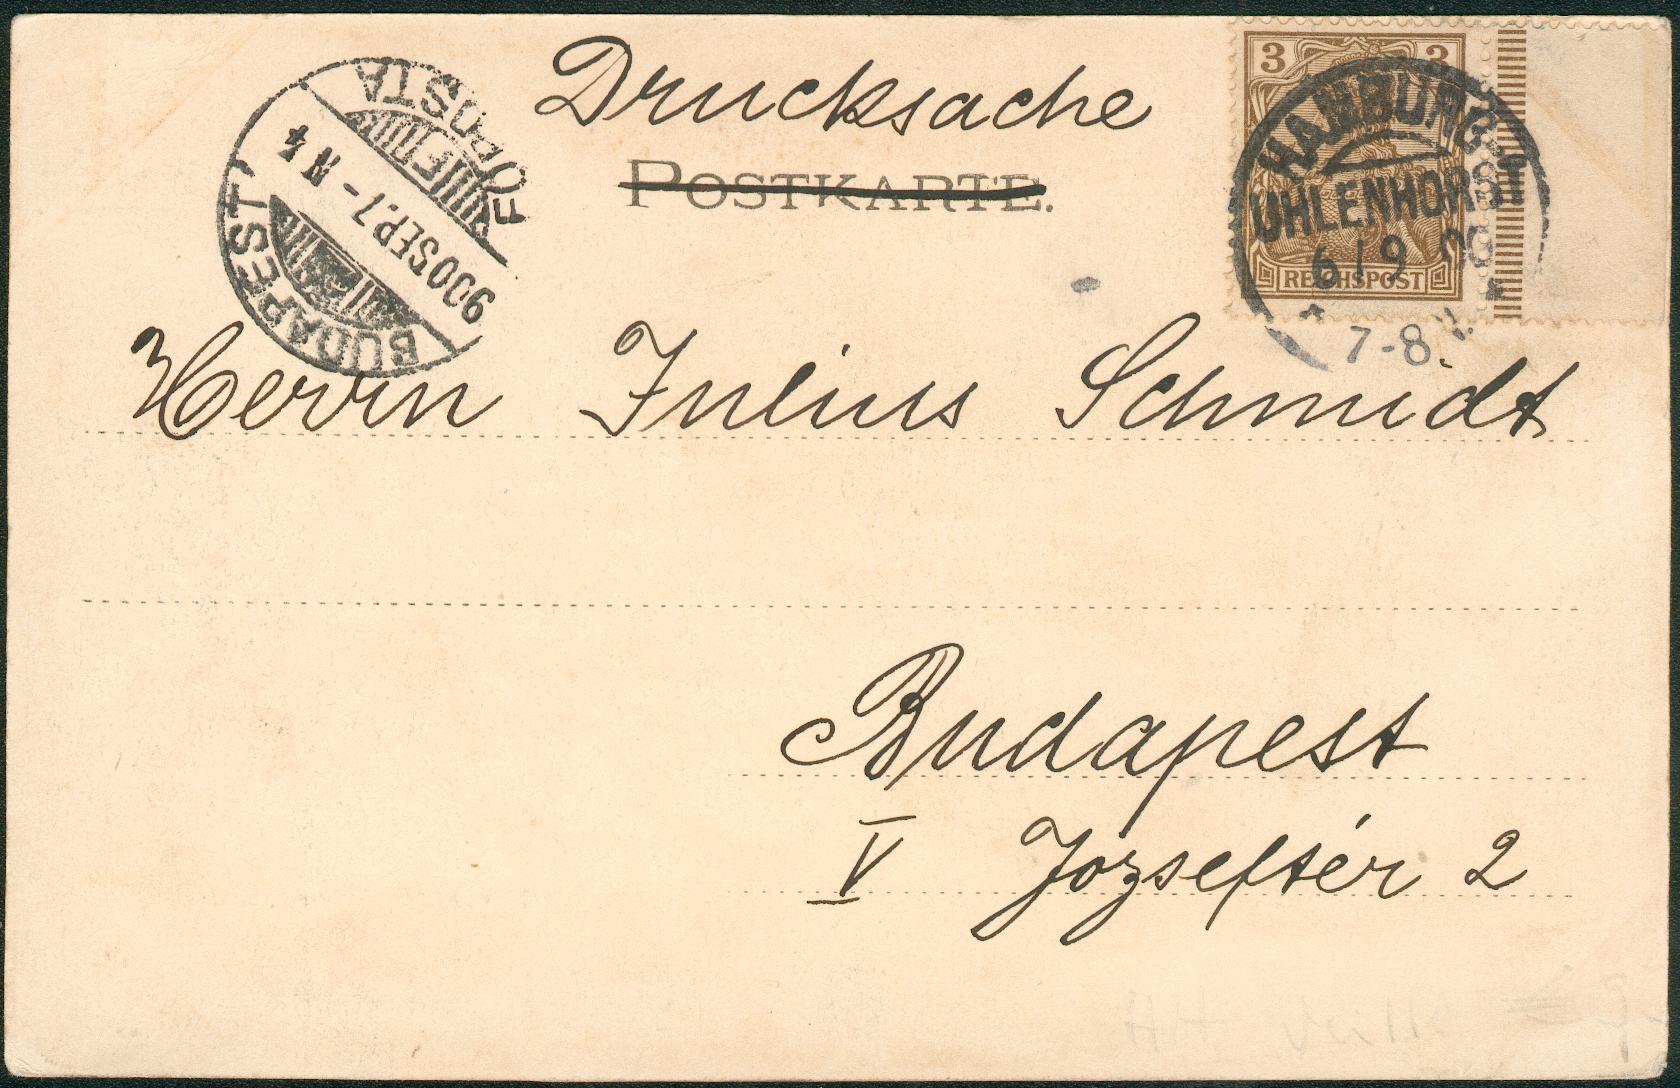 Drucksache
POSTKARTE.
3 3
REICHSPOST
HAMBURG
UHLENHORST
6/9 00
7-8
BUDAPEST
900 SEP. 7 - N 4
FŐPOSTA
Herrn Julius Schmidt
Budapest
V Józseftér 2